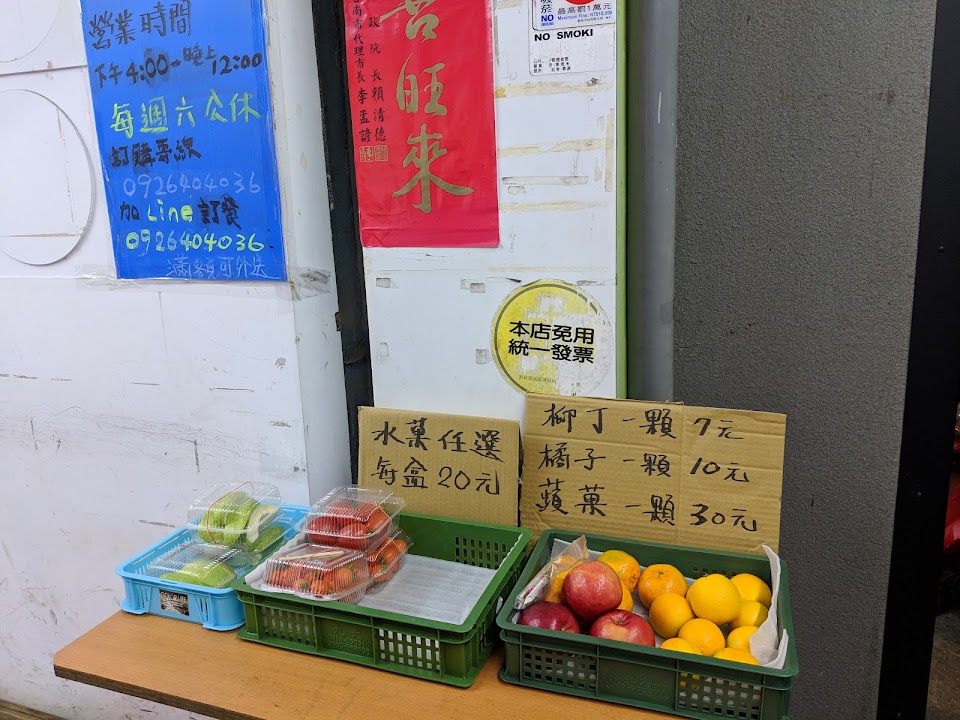 營業時間
下午4:00~晚上12:00
每週六公休
訂購專線
0926404036
加Line訂餐
0926404036
滿額可外送
政院長賴清德
台南市代理市長李孟諺
旺來
NO SMOKING
最高罰1萬元
Maximum Fine: NT$10,000
NO SMOKI
本店免用
統一發票
水菓任選
每盒20元
柳丁一顆7元
橘子一顆10元
蘋菓一顆30元